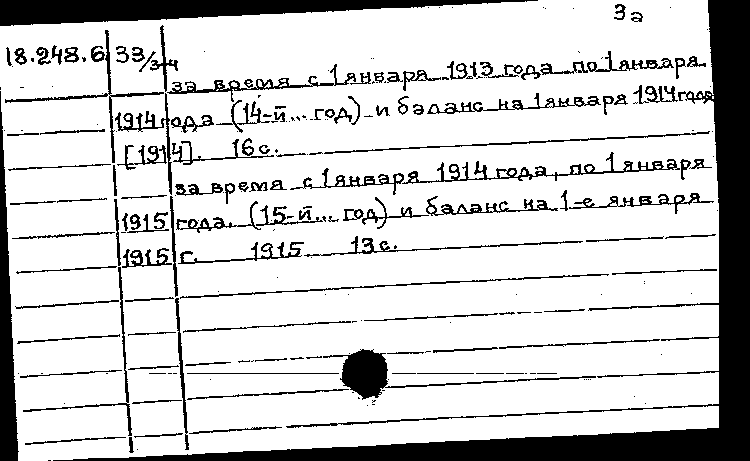 3а
18.248.6 33/3-4
за время с 1 января 1913 года по 1 января
1914 года (14-й... год) и баланс на 1 января 1914 года
[1914]. 16 с.
за время с 1 января 1914 года, по 1 января
1915 года. (15-й... год) и баланс на 1-е января
1915 г. 1915 13 с.